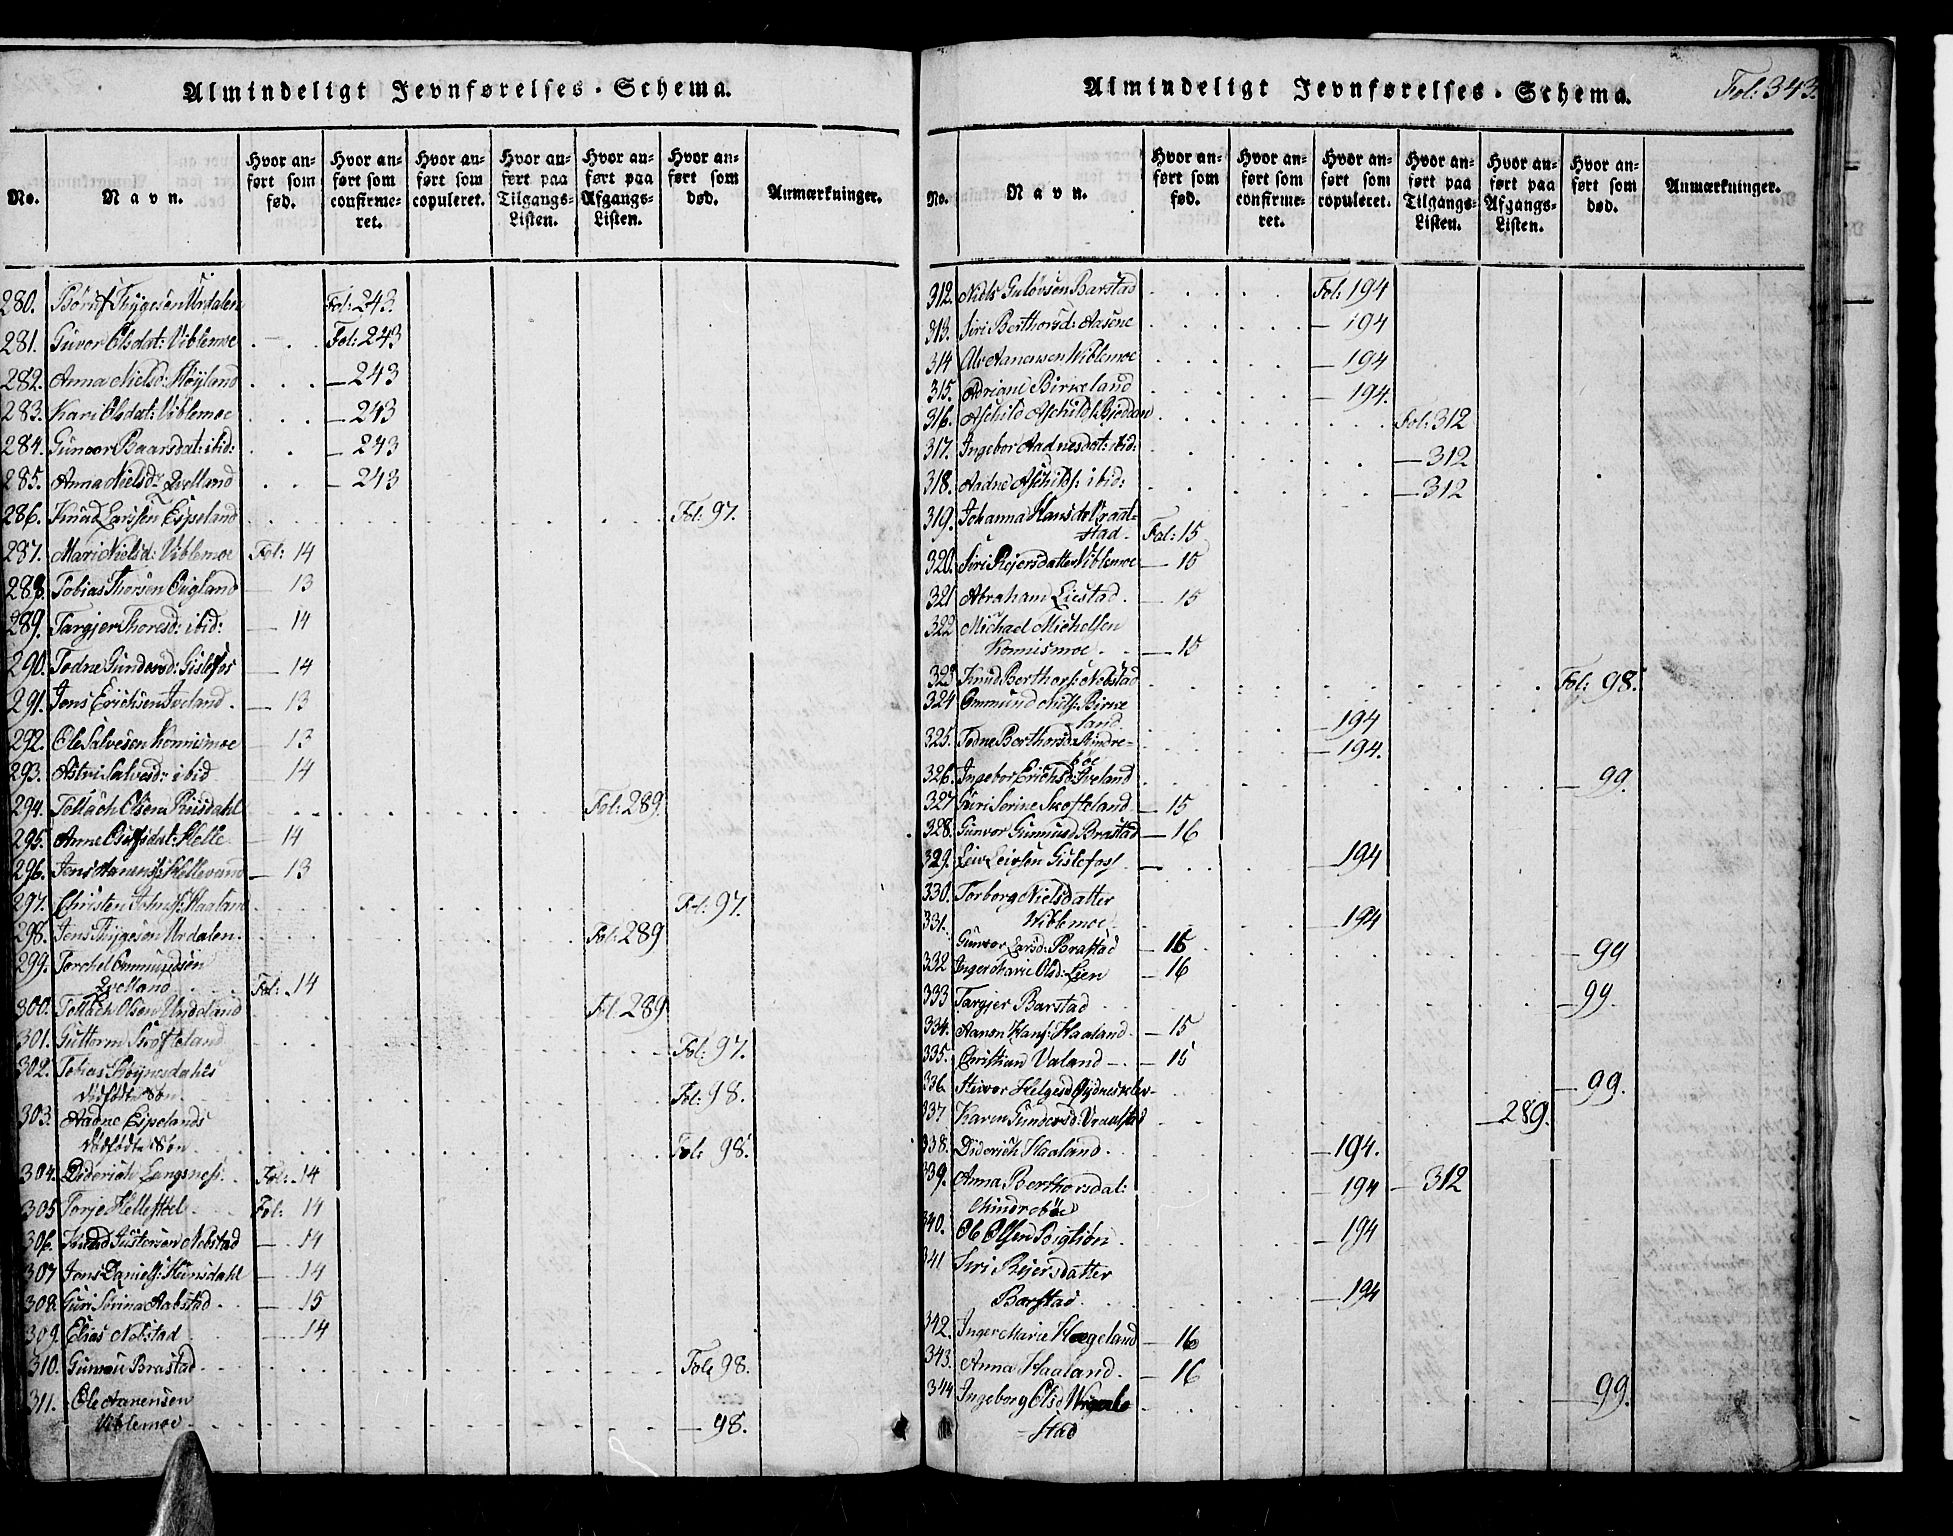 Almindeligt Jevnførelses-Schema.
No. Navn. Hvor anført som fød. Hvor anført som confirmeret. Hvor anført som copuleret. Hvor anført paa Tilgangs-Listen. Hvor anført paa Afgangs-Listen. Hvor anført som død. Anmærkninger.
280. Thygesen Urdalen Fol: 243.
281. Guvor Olsdat: Viblemoe . . . Fol: 243
282. Anna Nielsd: Høyland . . . — 243
283. Kari Olsdat: Viblemoe . . . — 243
284. Gunvor Baarsdat: ibid: . . — 243
285. Anna Nielsd: Qvelland . . — 243
286. Knud Larssen Espeland Fol: 97.
287. Mari Nielsd: Viblemoe Fol: 14
288. Tobias Thorsen Øigland — 13
289. Targjer Thoresd: ibid: — 14
290. Todne Gundersd: Gislefos — 14
291. Jens Erichsen Iveland . — 13
292. Ole Salvesen Konnismoe — 13
293. Astri Salvesd: ibid — 14
294. Tollach Olsen Risdahl Fol: 289.
295. Anne dat: Helle — 14
296. Jens Aanens: Hellevand — 13
297. Christen Johns: Haaland Fol: 97.
298. Jens Thygesen Urdalen. Fol: 289
299. Torchel Ommundsen
Qvelland Fol: 14
300. Tollach Olsen Undeland Fol. 289
301. Guttorm Skofteland Fol: 97.
302. Tobias Høynesdahls
dødfødte Søn. Fol: 98.
303. Aadne Espelands
dødfødte Søn Fol: 98.
304. Diderich Langnes: Fol: 14
305 Torje Hellestæl Fol: 14
306. Knud Gustavsen Nebstad — 14
307 Jens Daniels: Hunsdahl — 14
308. Guri Sørina Aabstad . — 15
309. Elias Nebstad — 14
310. Brastad Fol: 98.
311. Ole Aanensen
Viblemoe — 98.
Almindeligt Jevnførelses-Schema.
Fol: 343.
No. Navn. Hvor anført som fød. Hvor anført som confirmeret. Hvor anført som copuleret. Hvor anført paa Tilgangs-Listen. Hvor anført paa Afgangs-Listen. Hvor anført som død. Anmærkninger.
312. Niels Guløvsen Barstad Fol: 194
313. Siri Berthorsd: Aasene — 194
314 Alv Aanensen Viblemoe — 194
315. Adriane Birkeland — 194.
316. Aschild Aschilds: Fol: 312
317. Ingebor Aadnesdat: ibid: — 312
318. Aadne Aschilds: ibid: — 312
319. Johanna Hansd: Vraal-
stad. Fol: 15
320. Siri Reiersdatter Viblemoe — 15
321 Abraham Liestad . — 15
322 Michael Michelsen
Konnismoe. — 15
323 Knud Berthors: Nebstad Fol: 98.
324 Ommund Nils: Birke
land. — 194
325. Todne Berthorsd: Mindre-
bøe — 194.
326. Ingebor Erichsd: Iveland — 99.
327 Guri Serine Skofteland — 15
328. Gunvor Brastad — 16
329. Leiv Leivsen Gislefoss — 194
330. Torborg Nielsdatter
Viblemoe — 194
331. Gunvor Larsd: Brastad — 15 — 99
332 Inger Marie Olsd: Lien — 16
333 Targjer Barstad — 99.
334. Aanen Hans: Haaland — 15
335. Christian Valand — 15
336. Helgesd: — 99.
337 Karen Gundersd: Vraalstad — 289.
338. Diderich Haaland — 194.
339. Anna Berthorsdat:
Mindrebøe — 194 — 312
340. Ole Olsen — 194
341 Siri Reiersdatter
Barstad — 194
342. Inger Marie Hægeland — 16
343. Anna Haaland. — 16
344 Ingeborg Olsd
stad — 99.